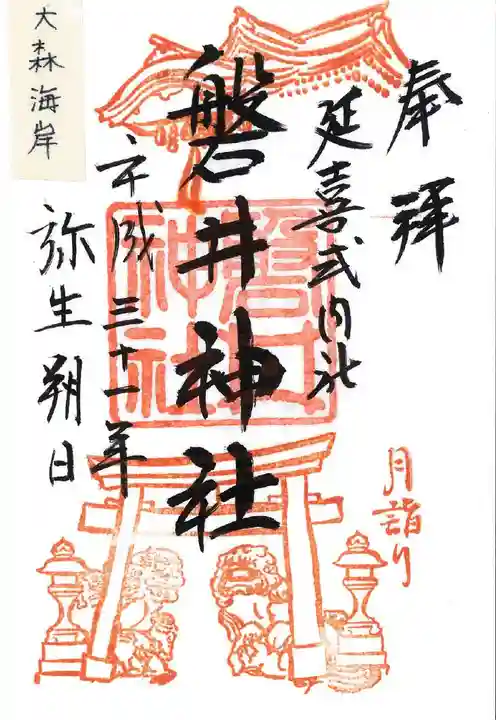 奉拝
延喜式内社
磐井神社
平成三十一年
弥生朔日
大森海岸
磐井
神社
月詣り